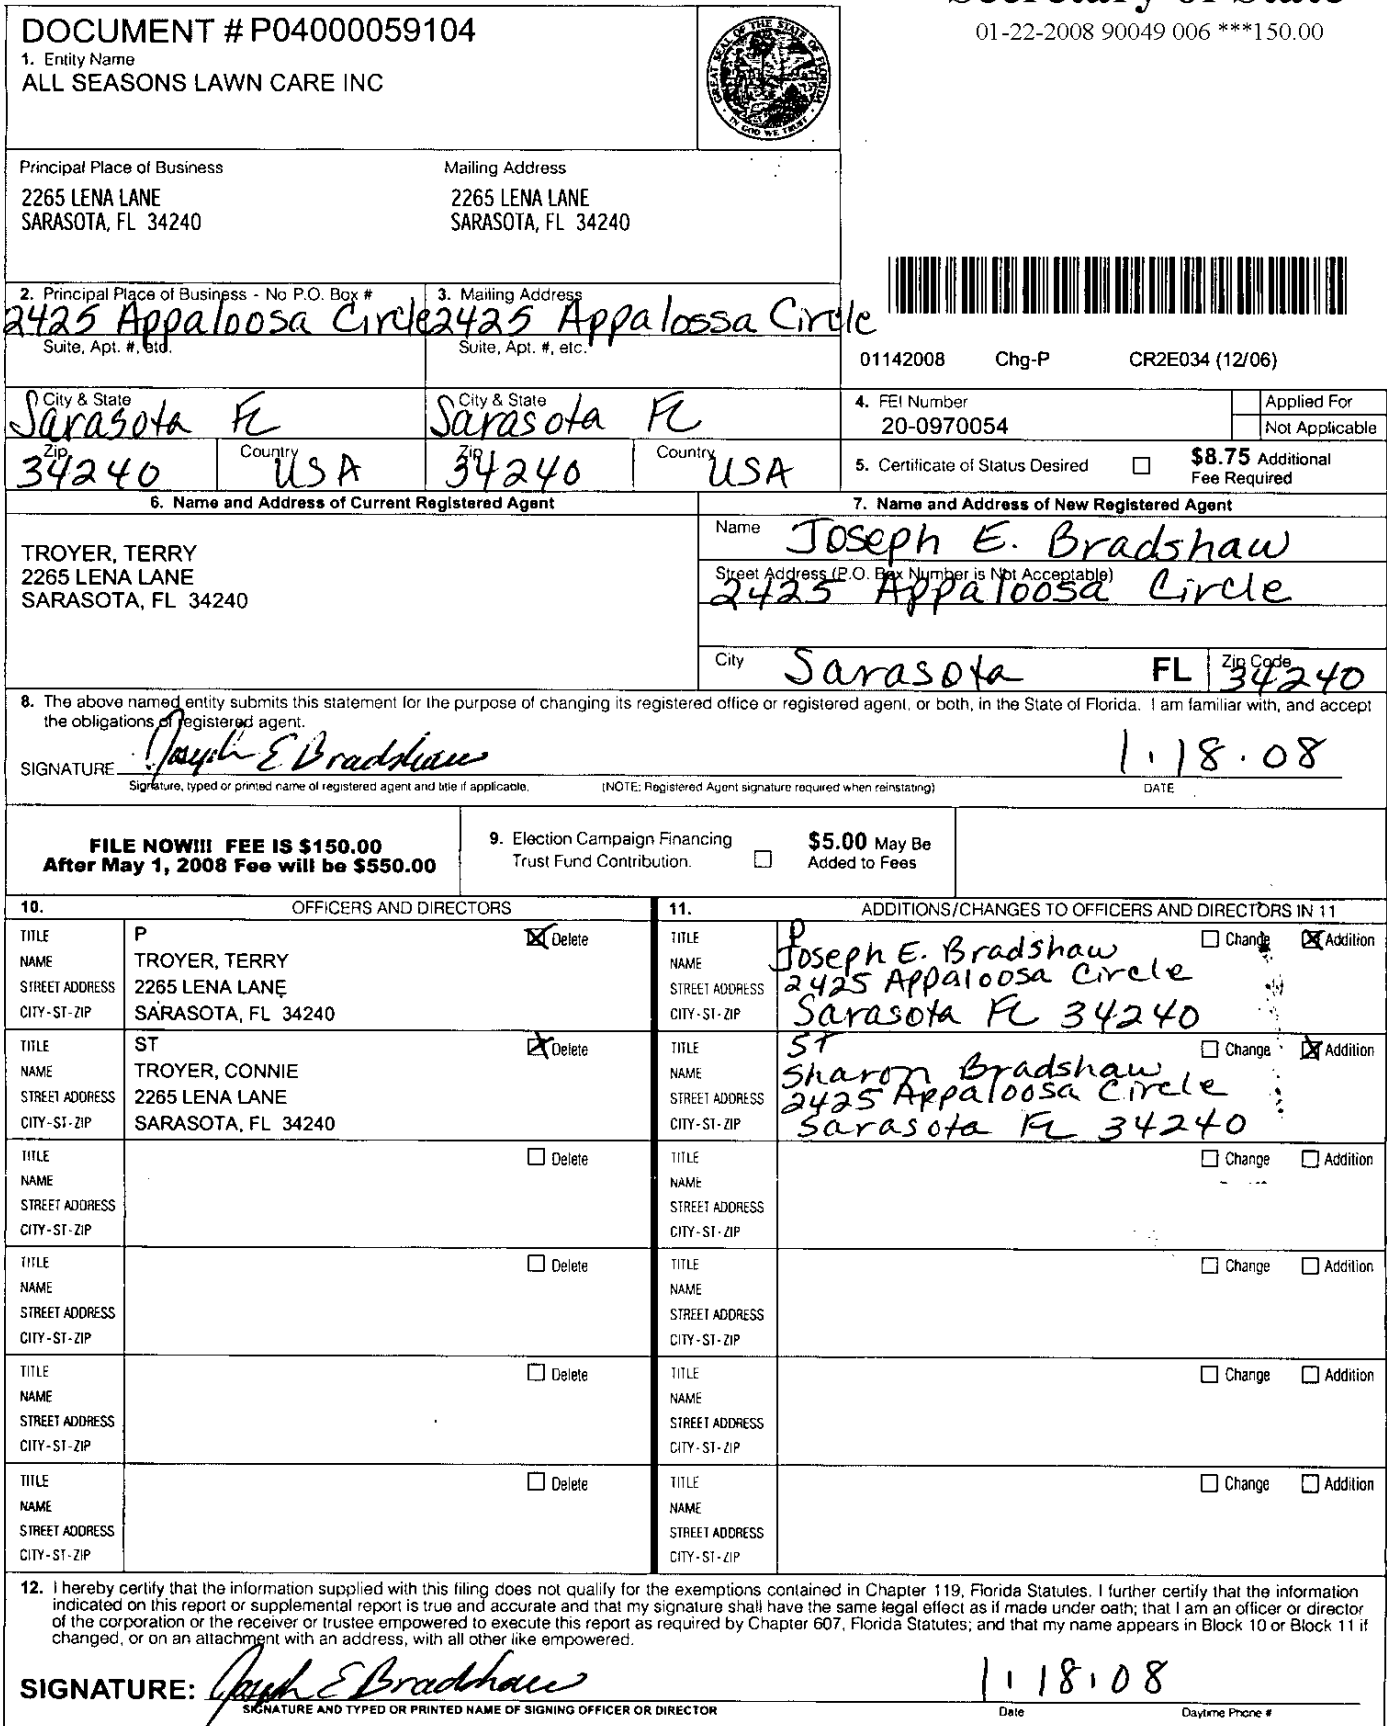 DOCUMENT # P04000059104
1. Entity Name
ALL SEASONS LAWN CARE INC
GREAT SEAL OF THE STATE OF FLORIDA
IN GOD WE TRUST
Secretary of State
01-22-2008 90049 006 ***150.00
Principal Place of Business
2265 LENA LANE
SARASOTA, FL 34240
Mailing Address
2265 LENA LANE
SARASOTA, FL 34240
2. Principal Place of Business - No P.O. Box #
2425 Appaloosa Circle
3. Mailing Address
2425 Appalossa Circle
Suite, Apt. #, etc.
Suite, Apt. #, etc.
01142008 Chg-P CR2E034 (12/06)
City & State
Sarasota FL
City & State
Sarasota FL
4. FEI Number
20-0970054
Applied For
Not Applicable
Zip
34240
Country
USA
Zip
34240
Country
USA
5. Certificate of Status Desired
$8.75 Additional
Fee Required
6. Name and Address of Current Registered Agent
TROYER, TERRY
2265 LENA LANE
SARASOTA, FL 34240
7. Name and Address of New Registered Agent
Name Joseph E. Bradshaw
Street Address (P.O. Box Number is Not Acceptable)
2425 Appaloosa Circle
City Sarasota FL Zip Code 34240
8. The above named entity submits this statement for the purpose of changing its registered office or registered agent, or both, in the State of Florida. I am familiar with, and accept
the obligations of registered agent.
SIGNATURE Joseph E Bradshaw 1.18.08
Signature, typed or printed name of registered agent and title if applicable. (NOTE: Registered Agent signature required when reinstating) DATE
FILE NOW!!! FEE IS $150.00
After May 1, 2008 Fee will be $550.00
9. Election Campaign Financing
Trust Fund Contribution.
$5.00 May Be
Added to Fees
10. OFFICERS AND DIRECTORS
TITLE P Delete
NAME TROYER, TERRY
STREET ADDRESS 2265 LENA LANE
CITY-ST-ZIP SARASOTA, FL 34240
TITLE ST Delete
NAME TROYER, CONNIE
STREET ADDRESS 2265 LENA LANE
CITY-ST-ZIP SARASOTA, FL 34240
TITLE Delete
NAME
STREET ADDRESS
CITY-ST-ZIP
TITLE Delete
NAME
STREET ADDRESS
CITY-ST-ZIP
TITLE Delete
NAME
STREET ADDRESS
CITY-ST-ZIP
TITLE Delete
NAME
STREET ADDRESS
CITY-ST-ZIP
11. ADDITIONS/CHANGES TO OFFICERS AND DIRECTORS IN 11
TITLE P Change Addition
NAME Joseph E. Bradshaw
STREET ADDRESS 2425 Appaloosa Circle
CITY-ST-ZIP Sarasota FL 34240
TITLE ST Change Addition
NAME Sharon Bradshaw
STREET ADDRESS 2425 Appaloosa Circle
CITY-ST-ZIP Sarasota FL 34240
TITLE Change Addition
NAME
STREET ADDRESS
CITY-ST-ZIP
TITLE Change Addition
NAME
STREET ADDRESS
CITY-ST-ZIP
TITLE Change Addition
NAME
STREET ADDRESS
CITY-ST-ZIP
TITLE Change Addition
NAME
STREET ADDRESS
CITY-ST-ZIP
12. I hereby certify that the information supplied with this filing does not qualify for the exemptions contained in Chapter 119, Florida Statutes. I further certify that the information
indicated on this report or supplemental report is true and accurate and that my signature shall have the same legal effect as if made under oath; that I am an officer or director
of the corporation or the receiver or trustee empowered to execute this report as required by Chapter 607, Florida Statutes; and that my name appears in Block 10 or Block 11 if
changed, or on an attachment with an address, with all other like empowered.
SIGNATURE: Joseph E Bradshaw 1.18.08
SIGNATURE AND TYPED OR PRINTED NAME OF SIGNING OFFICER OR DIRECTOR Date Daytime Phone #